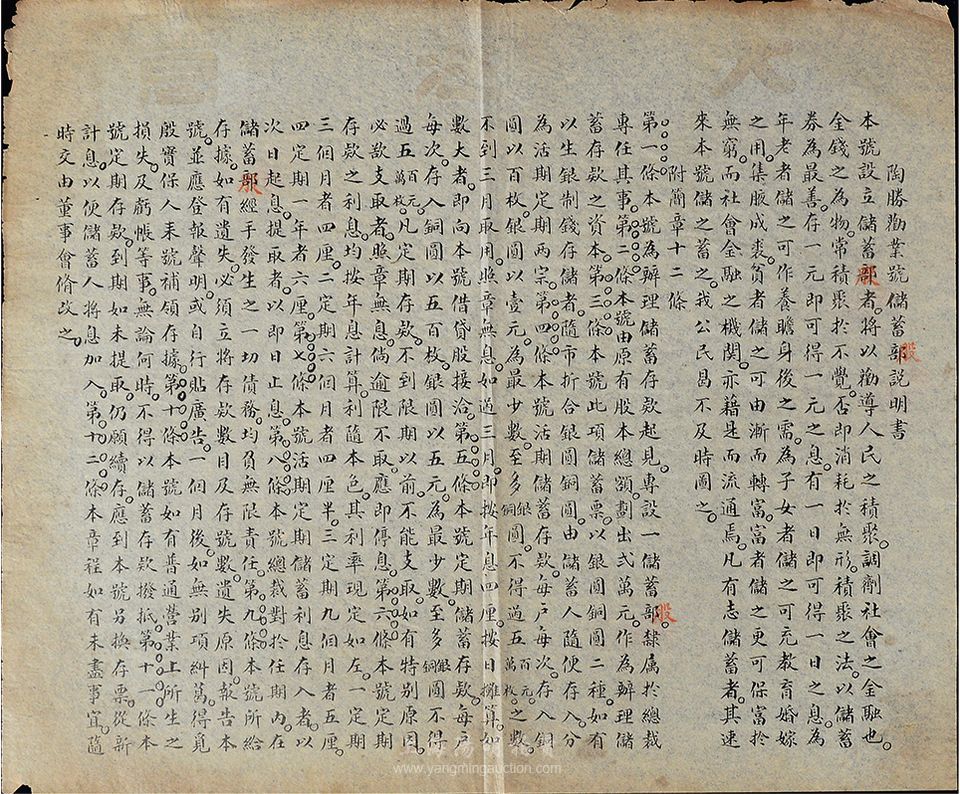 陶勝勸業號儲蓄部説明書
股
本號設立儲蓄部者。將以勸導人民之積聚。調劑社會之金融也。
金錢之為物。常積聚於不覺。否即消耗於無形。積聚之法。以儲蓄
券為最善。存一元即可得一元之息。有一日即可得一日之息。為
年老者儲之可作養贍身後之需。為子女者儲之可充教育婚嫁
之用。集腋成裘。貧者儲之可由漸而轉富。富者儲之更可保富於
無窮。而社會金融之機関。亦藉是而流通焉。凡有志儲蓄者。其速
來本號儲之蓄之。我公民曷不及時圖之。
附簡章十二條
第一條本號為辦理儲蓄存欵起見。專設一儲蓄部。隸属於總裁
股
專任其事。第二條本號由原有股本總額。劃出弍萬元。作為辦理儲
蓄存欵之資本。第三條本號此項儲蓄票。以銀圓銅圓二種。如有
以生銀制錢存儲者。隨市折合銀圓銅圓。由儲蓄人隨便存入。分
為活期定期兩宗。第四條本號活期儲蓄存欵。每户每次。存入銅
圓以百枚。銀圓以壹元。為最少數。至多銀銅圓。不得過五百元萬枚之數。
不到三月取用。照章無息。如過三月。即按年息四厘。按日攤算。如
數大者。即向本號借貸股接洽。第五條本號定期儲蓄存欵。每户
每次。存入銅圓以五百枚。銀圓以五元。為最少數。至多銀銅圓不得
過五百元萬枚。凡定期存欵。不到限期以前。不能支取。如有特别原因。
必欲支取者。照章無息。倘逾限不取。應即停息。第六條本號定期
存欵之利息。均按年息計算。利隨本色。其利率現定如左。一定期
三個月者四厘。二定期六個月者四厘半。三定期九個月者五厘。
四定期一年者六厘。第七條本號活期定期儲蓄利息。存入者以
次日起息。提取者。以即日止息。第八條本號總裁對於任期内。在
儲蓄部經手發生之一切債務。均負無限責任。第九條本號所給
存據。如有遺失。必須立將存欵數目及存號數。遺失原因。報告本
號。並應登報聲明。或自行貼廣告。一個月後。如無别項糾葛。得覓
殷實保人。来號補領存據。第十條本號如有普通營業上所生之
損失。及虧帳等事。無論何時。不得以儲蓄存欵撥抵。第十一條本
號定期存欵。到期如未提取。仍願續存。應到本號另換存票。從新
計息。以便儲蓄人將息加入。第十二條本章程如有未盡事宜。隨
時交由董事會脩改之。
www.yangmingauction.com